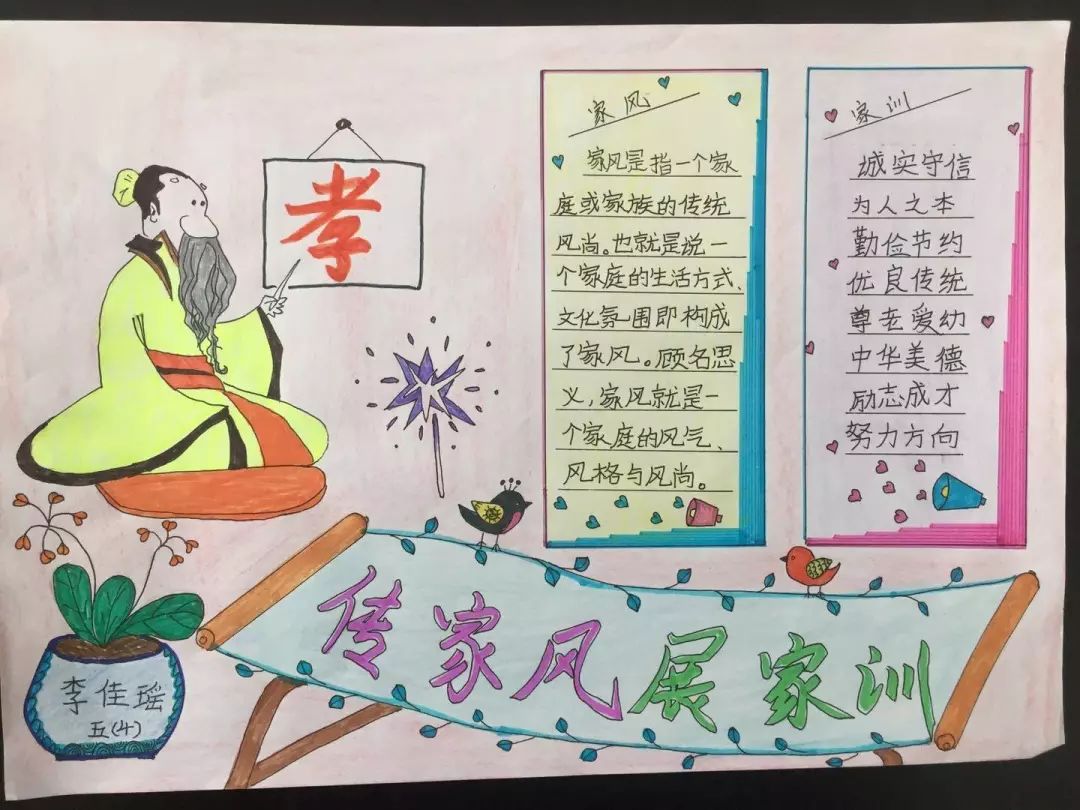 孝
家风
家风是指一个家
庭或家族的传统
风尚。也就是说一
个家庭的生活方式、
文化氛围即构成
了家风。顾名思
义,家风就是一
个家庭的风气、
风格与风尚。
家训
诚实守信
为人之本
勤俭节约
优良传统
尊老爱幼
中华美德
励志成才
努力方向
传家风展家训
李佳瑶
五(4)